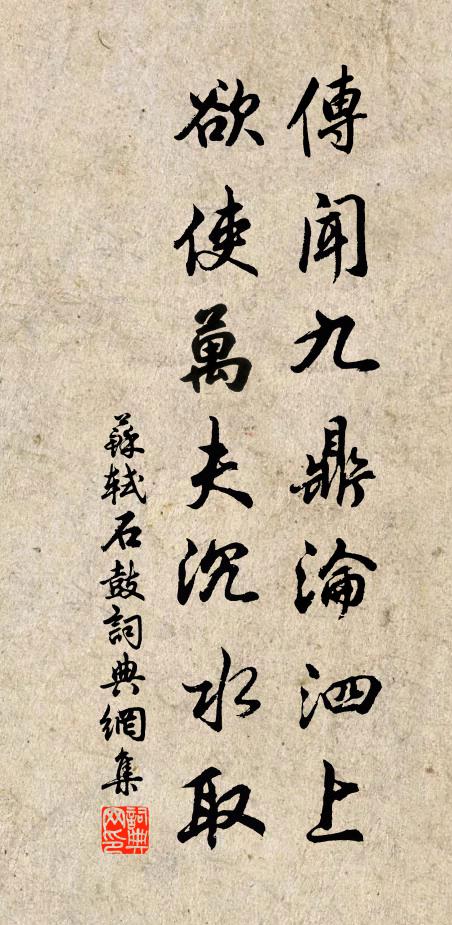 傳聞九鼎淪泗上
欲使萬夫沉水取
蘇軾石鼓詞典網集
詞典
网印